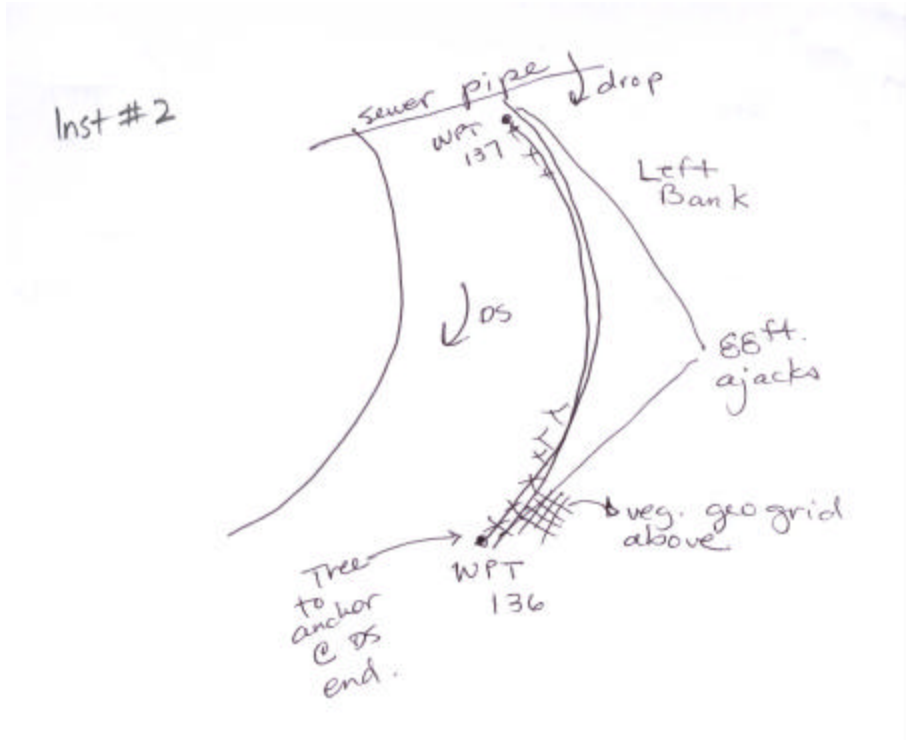 Inst #2
sewer pipe
drop
WPT
137
Left
Bank
DS
88 ft.
ajacks
veg. geo grid
above
Tree
to
anchor
@ DS
end.
WPT
136